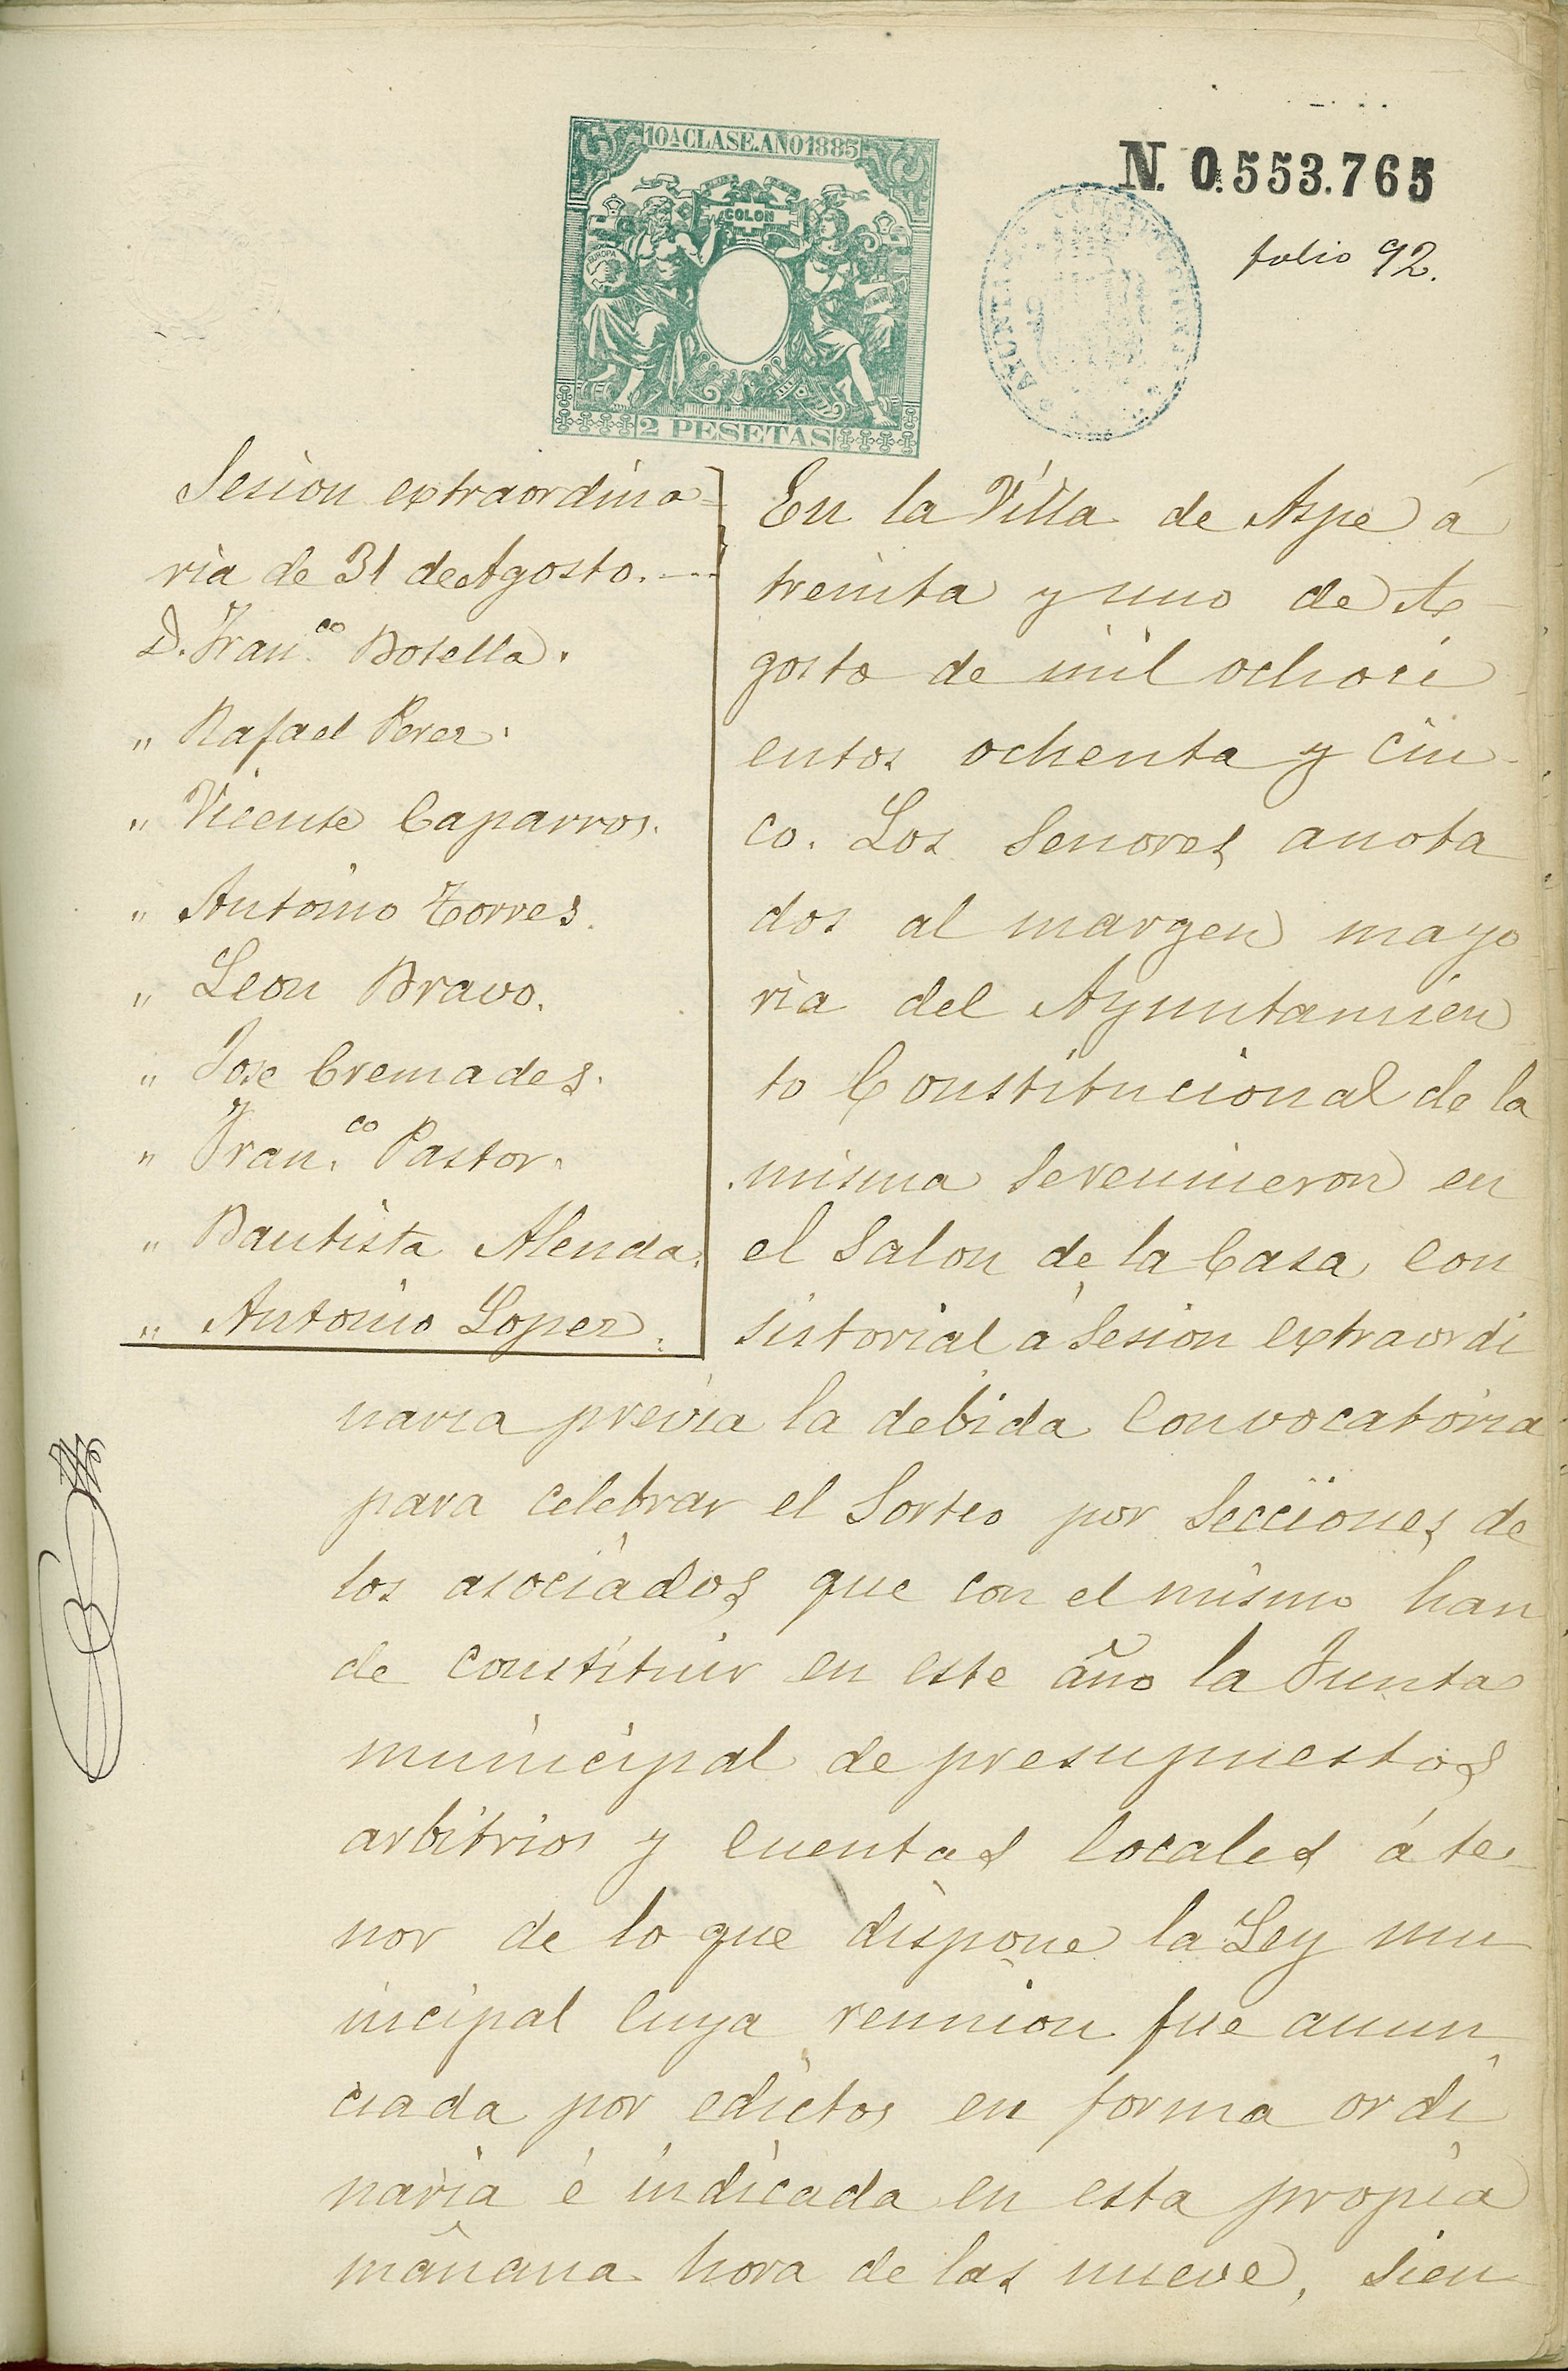 10ª CLASE. AÑO 1885
COLON
EUROPA
2 PESETAS
N. 0.553.765
folio 92.
Sesion extraordina=
ria de 31 de Agosto.---
D. Fran.co Botella.
" Rafael Perez.
" Vicente Caparros.
" Antonio Torres.
" Leon Bravo.
" Jose Cremades.
" Fran.co Pastor.
" Bautista Alenda.
" Antonio Lopez.
En la Villa de Aspe á
treinta y uno de A-
gosto de mil ochoci
entos ochenta y cin-
co. Los Senores anota
dos al margen mayo
ria del Ayuntamien
to Constitucional de la
misma se reunieron en
el Salon de la Casa Con
sistorial á Sesion extraordi
naria previa la debida Convocatoria
para celebrar el Sorteo por Secciones de
los asociados que con el mismo han
de constituir en este año la Junta
municipal de presupuestos
arbitrios y cuentas locales á te-
nor de lo que dispone la Ley mu
nicipal cuya reunion fue anun
ciada por edictos en forma ordi
naria é indicada en esta propia
mañana hora de las nueve, sien